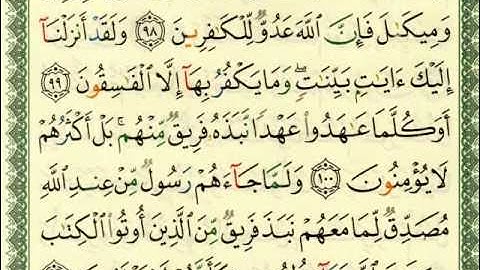 وَمِيكَىٰلَ فَإِنَّ ٱللَّهَ عَدُوٌّ لِّلْكَـٰفِرِينَ ٩٨ وَلَقَدْ أَنزَلْنَآ
إِلَيْكَ ءَايَـٰتٍۭ بَيِّنَـٰتٍ ۖ وَمَا يَكْفُرُ بِهَآ إِلَّا ٱلْفَـٰسِقُونَ ٩٩
أَوَكُلَّمَا عَـٰهَدُوا۟ عَهْدًا نَّبَذَهُۥ فَرِيقٌ مِّنْهُم ۚ بَلْ أَكْثَرُهُمْ
لَا يُؤْمِنُونَ ١٠٠ وَلَمَّا جَآءَهُمْ رَسُولٌ مِّنْ عِندِ ٱللَّهِ
مُصَدِّقٌ لِّمَا مَعَهُمْ نَبَذَ فَرِيقٌ مِّنَ ٱلَّذِينَ أُوتُوا۟ ٱلْكِتَـٰبَ